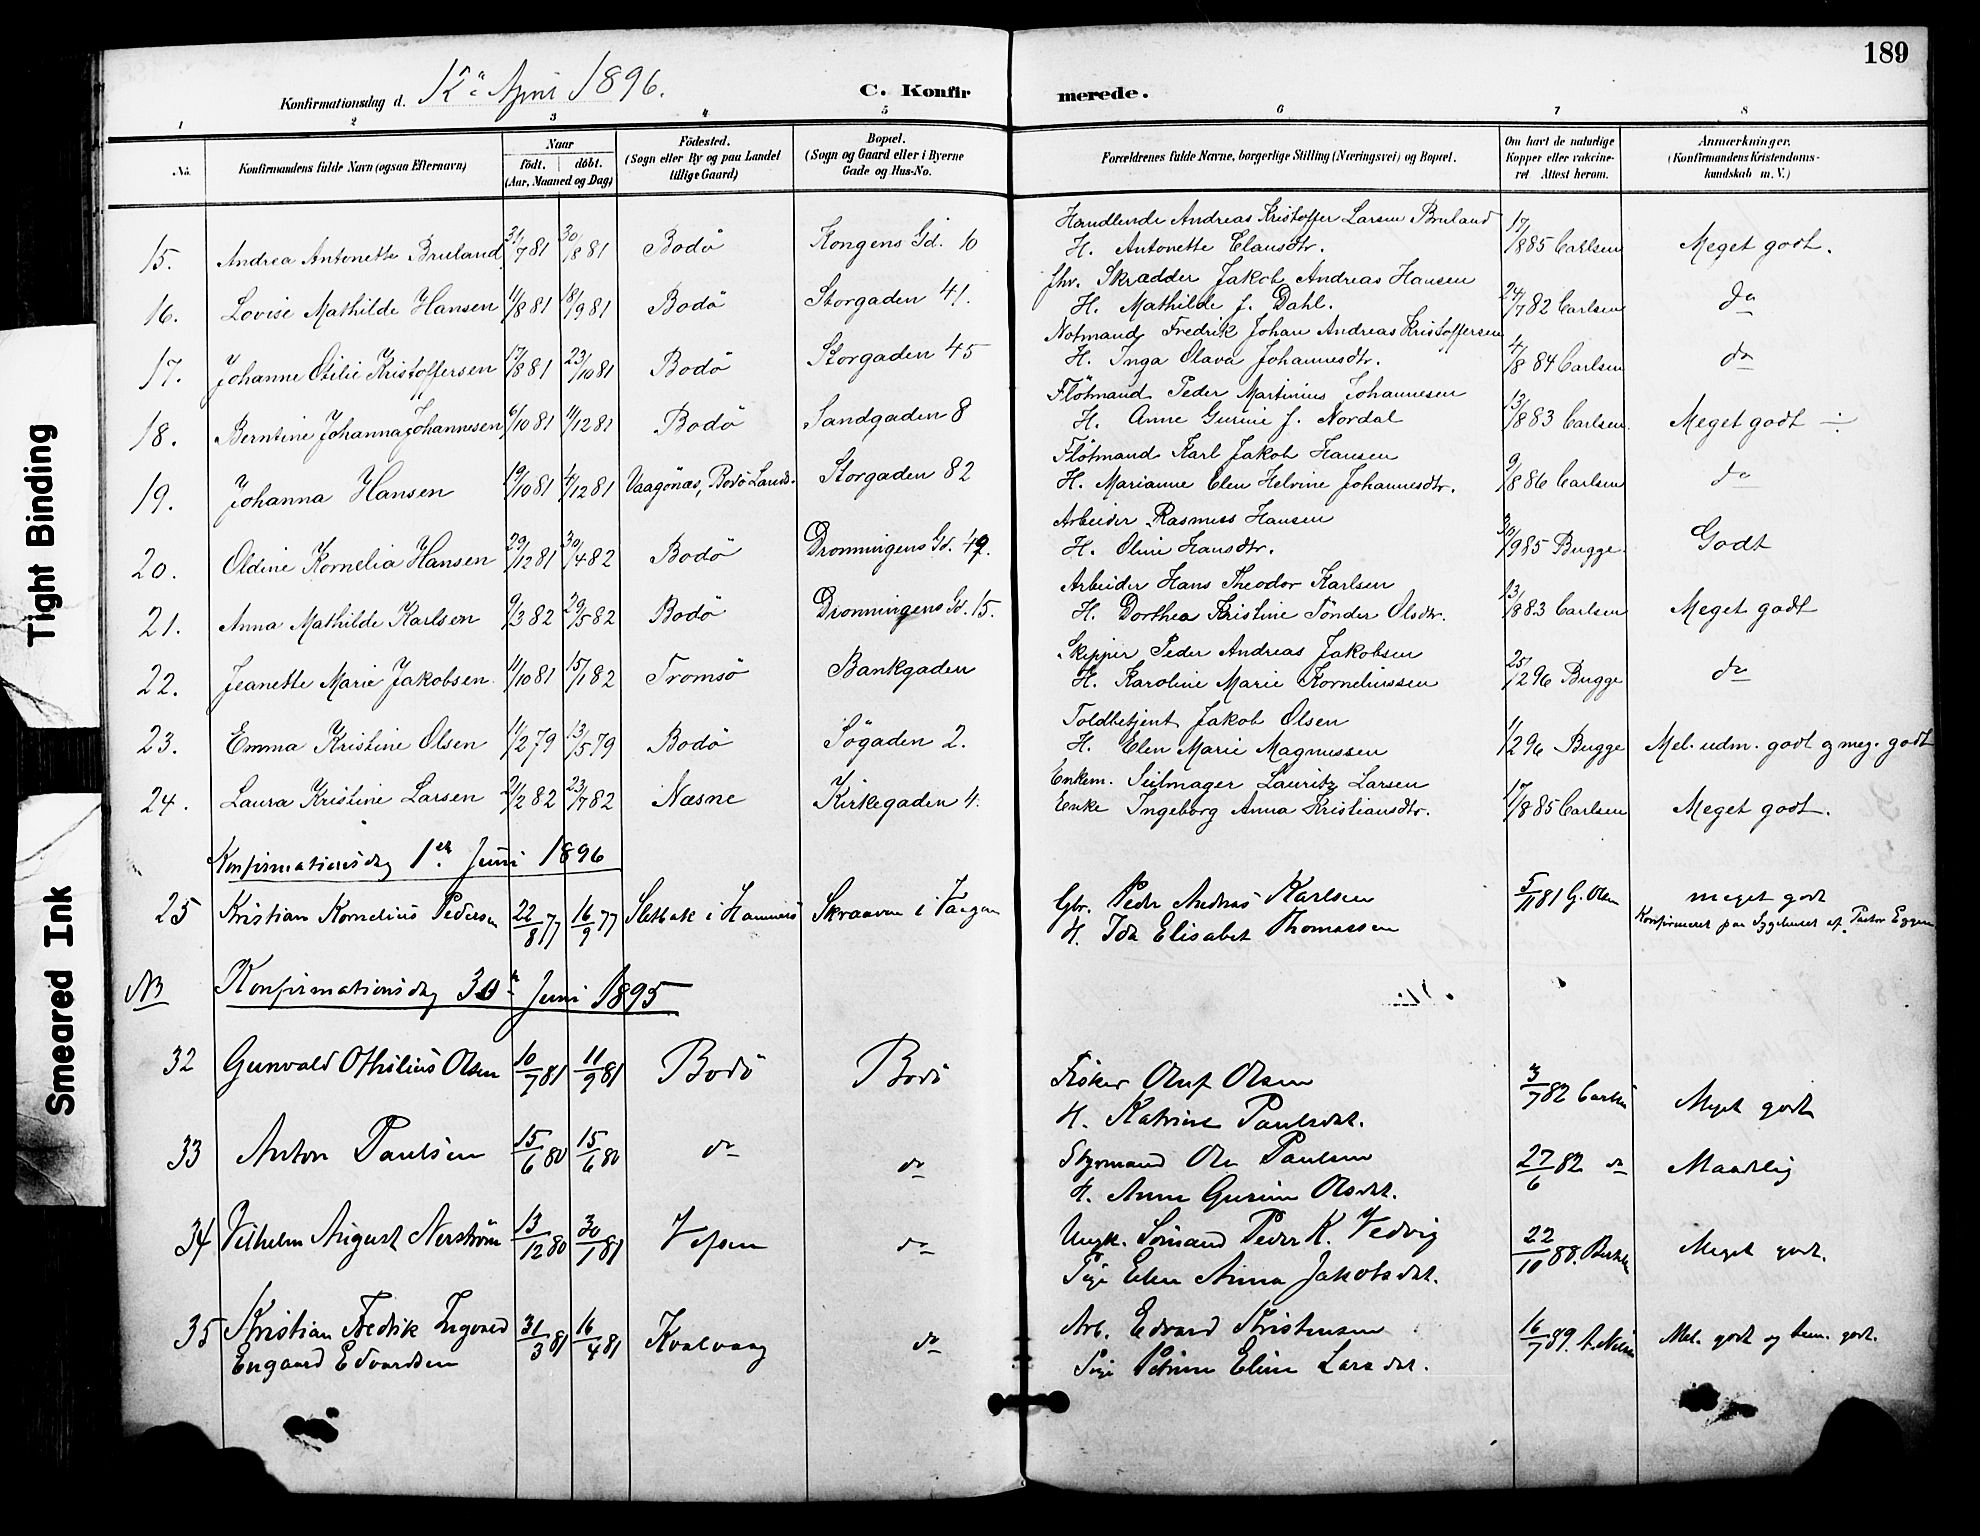 189
Konfirmationsdag d. 12te April 1896. C. Konfirmerede.
1 2 3 4 5 6 7 8
No. Konfirmandens fulde Navn (ogsaa Efternavn) Naar født. døbt. (Aar, Maaned og Dag) Fødested. (Sogn eller By og paa Landet tillige Gaard) Bopæl. (Sogn og Gaard eller i Byerne Gade og Hus-No. Forældrenes fulde Navne, borgerlige Stilling (Næringsvei) og Bopæl. Om havt de naturlige Kopper eller vaccineret Attest herom. Anmærkninger. (Konfirmandens Kristendomskundskab m. V.)
15. Andrea Antonette Bruland 31/7 81 30/8 81 Bodö Kongens Gd. 10 Handlende Andreas Kristoffer Larsen Bruland 17/8 85 Carlsen Meget godt.
H. Antonette Clausdtr.
16. Lovise Mathilde Hansen 11/8 81 18/9 81 Bodö Storgaden 41. fhv. Skrædder Jakob Andreas Hansen 24/7 82 Carlsen do
H. Mathilde f. Dahl.
17. Johanne Otilie Kristoffersen 17/8 81 23/10 81 Bodö Storgaden 45 Notmand Fredrik Johan Andreas Kristoffersen 4/8 84 Carlsen do
H. Inga Olava Johannesdtr.
18. Berntine Johanna Johannesen 6/10 81 11/12 81 Bodö Sandgaden 8 Flötmand Peder Martinius Johannesen 13/8 83 Carlsen. Meget godt ÷
H. Anne Gurine f. Nordal
19. Johanna Hansen 19/10 81 4/12 81 Vaagönæs, Bodö Lands. Storgaden 82 Flötmand Karl Jakob Hansen 9/8 86 Carlsen do
H. Marianne Elen Helvine Johannesdtr.
20. Oldine Kornelia Hansen 29/12 81 30/4 82 Bodö Dronningens Gd. 49. Arbeider Rasmus Hansen 30/9 85 Bugge. Godt
H. Oline Hansdtr.
21. Anna Mathilde Karlsen 9/3 82 29/5 82 Bodö Dronningens Gd. 15. Arbeider Hans Theodor Karlsen 13/8 83 Carlsen Meget godt
H. Dorthea Kristine Tönder Olsdtr.
22. Jeanette Marie Jakobsen. 11/10 81 15/1 82 Tromsö Bankgaden Skipper Peder Andreas Jakobsen 25/2 96 Bugge do
H. Karoline Marie Korneliussen
23. Emma Kristine Olsen 11/2 79 13/5 79 Bodö Sögaden 2. Toldbetjent Jakob Olsen 1/2 96 Bugge Mel. udm. godt og meg. godt
H. Elen Marie Magnussen
24. Laura Kristine Larsen 21/2 82 23/7 82 Næsne Kirkegaden 4. Enkem. Seilmager Lauritz Larsen 17/8 85 Carlsen Meget godt.
Enke Ingeborg Anna Kristiansdtr.
Konfirmationsdag 1ste Juni 1896
25 Kristian Kornelius Pedersen 22/8 77 16/9 77 Sletbak i Hammerö Skraaven i Vaagan Gbr. Peder Andreas Karlsen 5/11 81 G. Olsen meget godt
H. Ida Elisabet Thomassen Konfirmeret paa Sygehuset af Pastor Eggen
NB Konfirmationsdag 30te Juni 1895
32 Gunvald Othilius Olsen 10/7 81 11/9 81 Bodö Bodö Fisker Oluf Olsen 3/7 82 Carlsen Meget godt
H. Katrine Paulsdat.
33 Anton Paulsen 15/6 80 15/6 80 do do Styrmand Ole Paulsen 27/6 82 do Maadelig
H. Anne Gurine Olsdat.
34 Vilhelm August Nerström 13/12 80 30/1 81 Vefsen do Ungk. Sömand Peder K. Vedvig 22/10 88. Meget godt.
Pige Elen Anna Jakobsdat.
35 Kristian Fredrik Ingvard 31/3 81 16/4 81 Kvalvaag do Arb. Edvard Kristensen 16/7 89. Mel. godt og tem. godt.
Engaard Edvardsen Pige Petrine Eline Larsdat.
Tight Binding
Smeared Ink